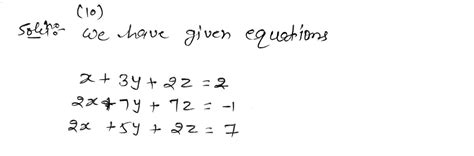 (10)
Soln:- We have given equations
x + 3y + 2z = 2
2x + 7y + 7z = -1
2x + 5y + 2z = 7